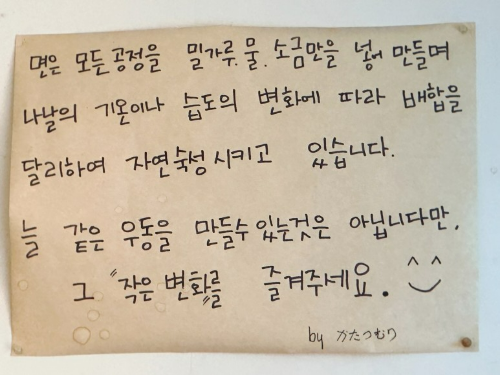 면은 모든공정을 밀가루.물.소금만을 넣어 만들며
나날의 기온이나 습도의 변화에 따라 배합을
달리하여 자연숙성시키고 있습니다.
늘 같은 우동을 만들수있는것은 아닙니다만,
그 "작은변화"를 즐겨주세요. ^^
by かたつむり